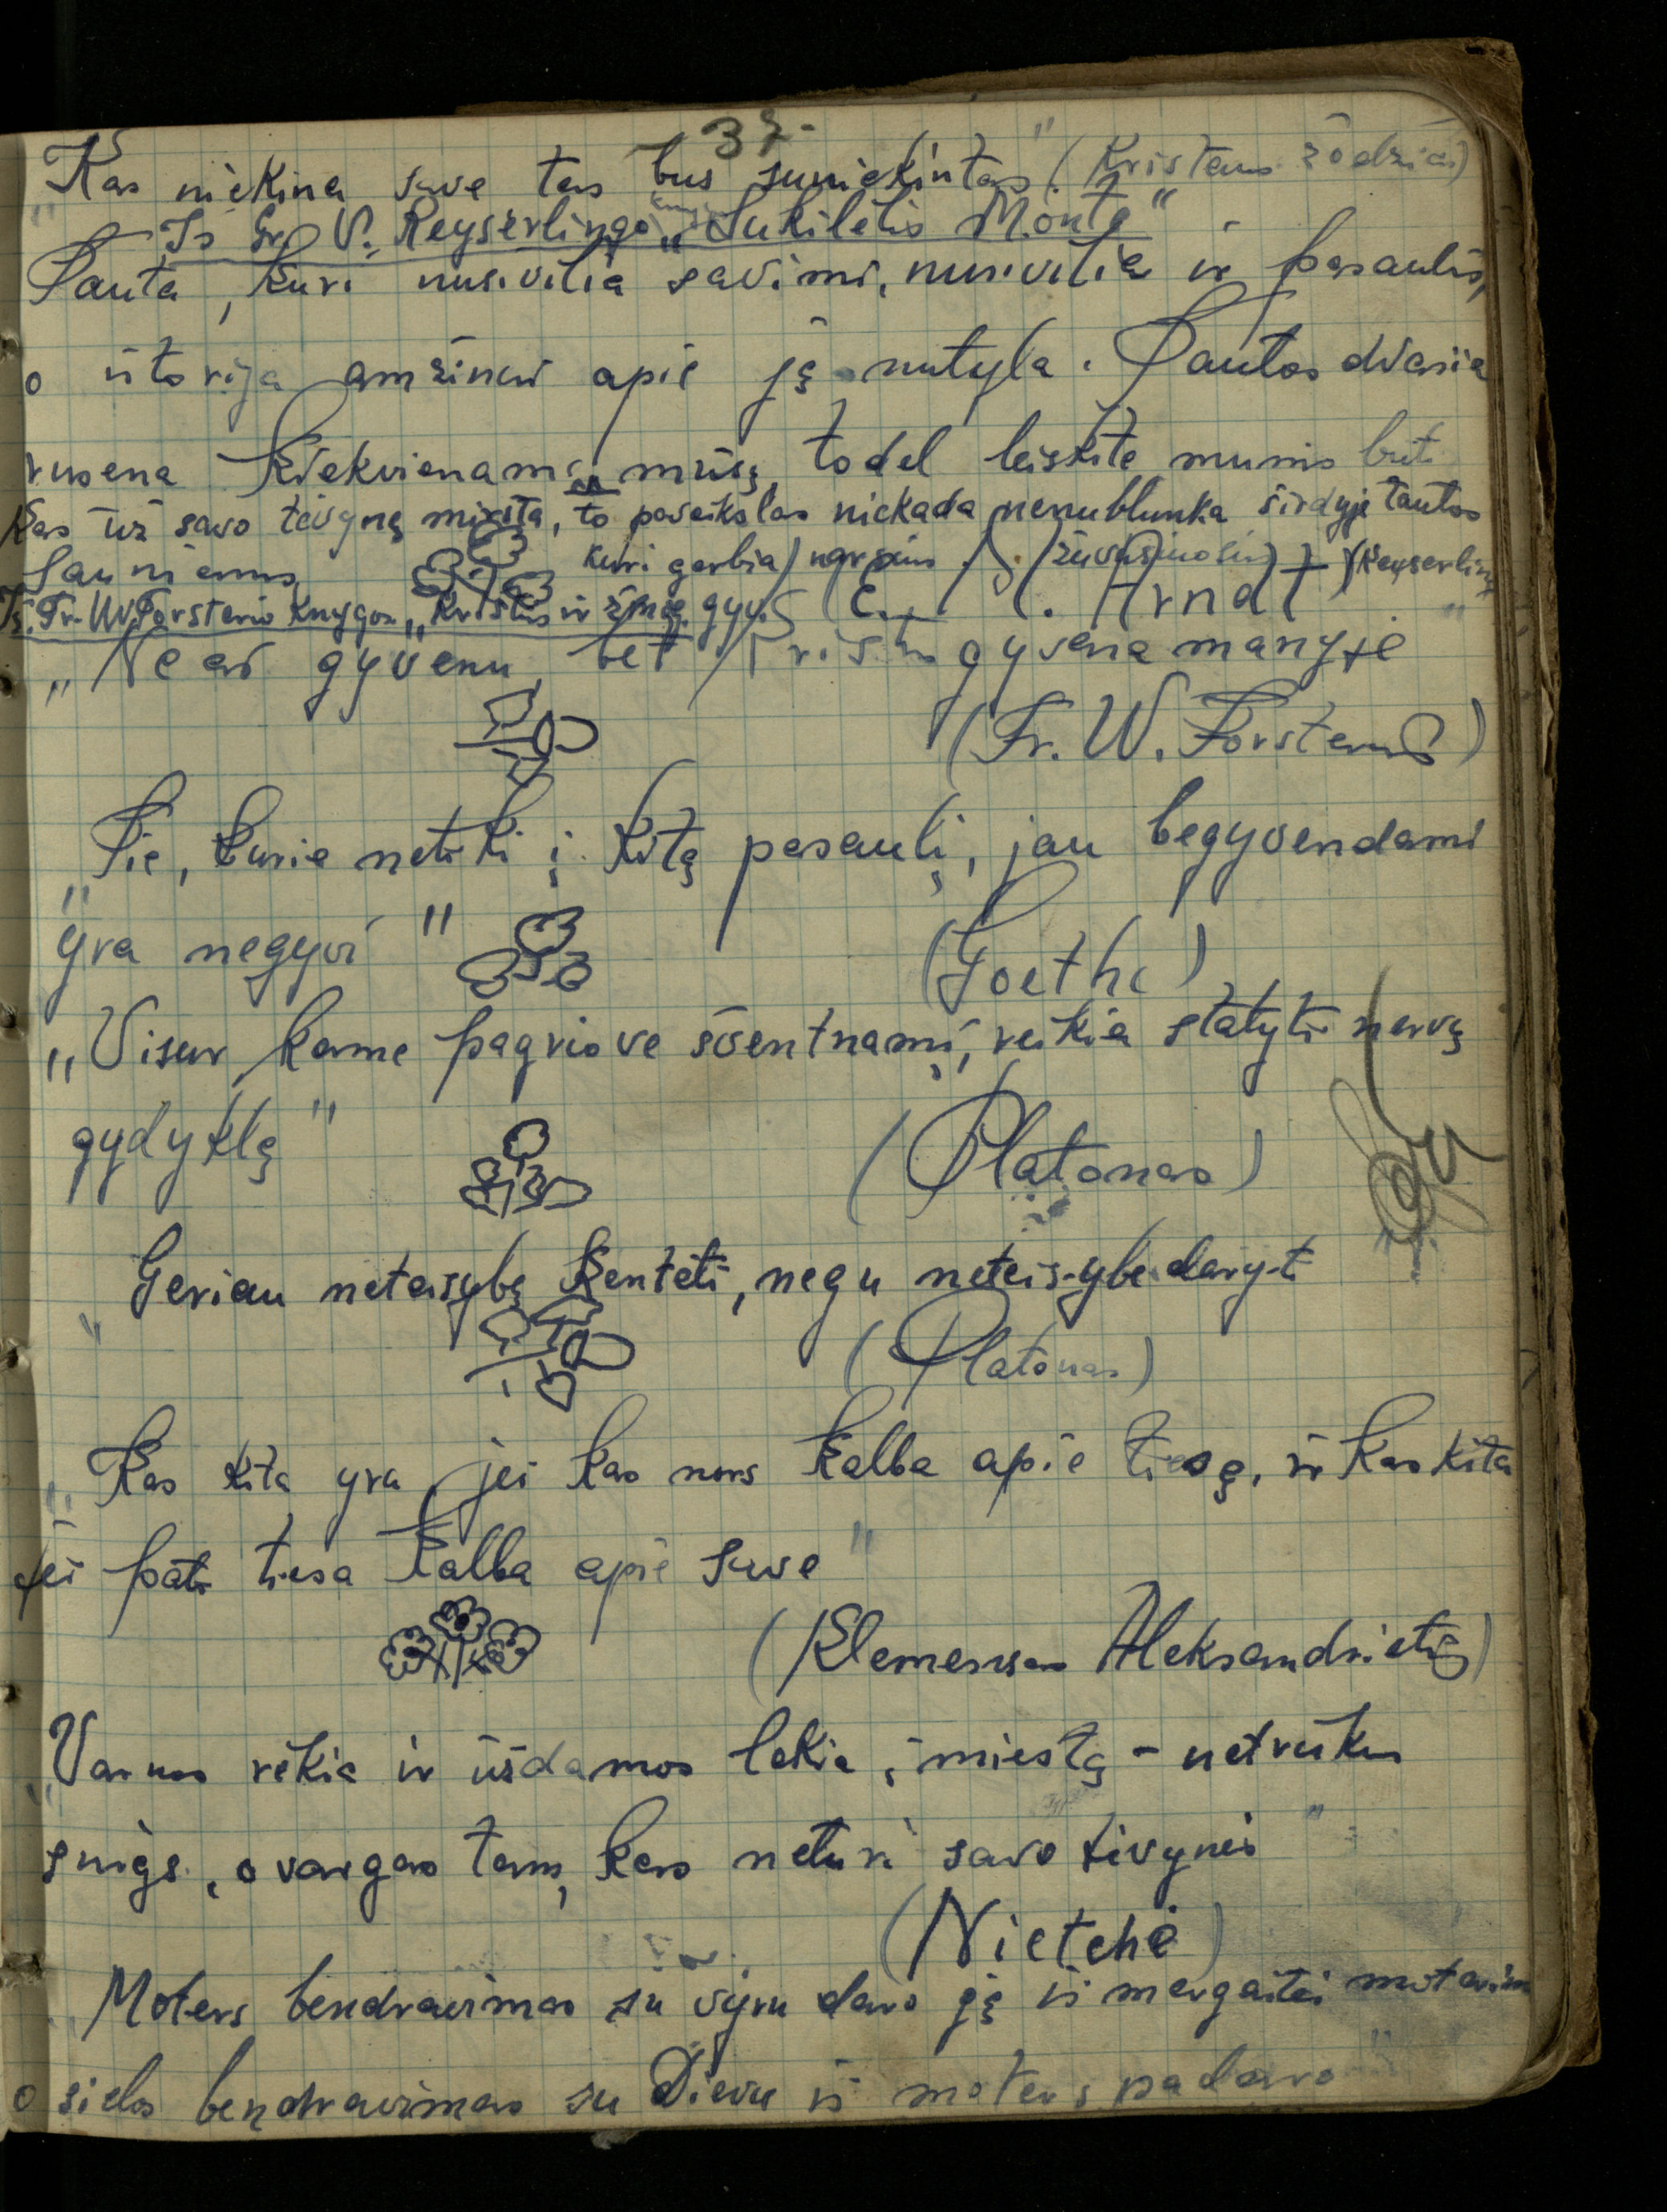 37-
„Kas niekina save tas bus suniekintas" (Kristaus žodžiai)
Iš Gr. V. Keyserlingo „Sukilėlis Monta"
Tauta, kuri nusivilia savimi, nusivilia ir pasaulis,
o istorija amžinai apie ją nutyla. Tautos dvasia
rusena kiekvienam iš mūsų, todel leiskite mumis buti
Kas už savo tėvynę miršta, to paveikslas niekada nenublunka širdyje tautos
Jauniems
kuri gerbia narsius (Keyserling)
Iš. Fr. W. Forsterio Knygos „Kristus ir žmog. gyv. E. Arndt
„Ne aš gyvenu, bet Kristus gyvena manyje"
(Fr. W. Forsteris)
„Tie, kurie netiki į kitą pasaulį, jau begyvendami
yra negyvi"
(Goethe)
„Visur, kame pagriove šventnamį, reikia statyti nervų
gydyklą"
(Platonas)
„Geriau neteisybę kentėti, negu neteisybe daryti
(Platonas)
„Kas kita yra, jei kas nors kalba apie tiesą, ir kas kita
jei pati tiesa kalba apie save"
(Klemensas Aleksandrietis)
„Varnos rėkia ir ūšdamos lekia į miestą - netrukus
snigs, o vargas tam, kas neturi savo tėvynės"
(Nietchė)
„Moters bendravimas su vyru daro ją iš mergaitės moterim
o sielos bendravimas su Dievu iš moters padaro"